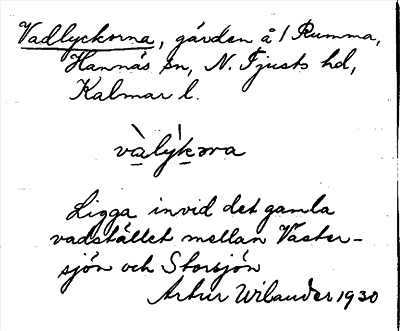 Vadlyckorna, gärden å 1 Rumma,
Hannäs sn, N. Tjusts hd,
Kalmar l.
Ligga invid det gamla
vadstället mellan Väster-
sjön och Storsjön
Artur Wilander 1930